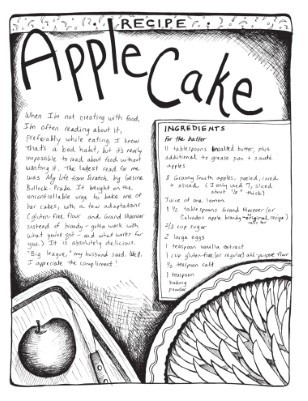 RECIPE
Apple
Cake
When I'm not creating with food,
I'm often reading about it,
preferably while eating. I know
that's a bad habit, but it's nearly
impossible to read about food without
wanting it. The latest read for me
was My Life from Scratch by Gesine
Bullock-Prado. It brought on the
uncontrollable urge to bake one of
her cakes, with a few adaptations
(gluten-free flour and Grand Marnier
instead of brandy - gotta work with
what you've got - and what works for
you.) It is absolutely delicious.
"Big league," my husband said. Well,
I appreciate the compliment!
INGREDIENTS
for the batter
11 tablespoons unsalted butter, plus
additional to grease pan + sauté
apples
8 Granny Smith apples, peeled, cored
+ sliced, (I only used 7, sliced
about 1/8" thick)
Juice of one lemon
1 1/2 tablespoons Grand Marnier (or
Calvados apple brandy - original recipe)
2/3 cup sugar
2 large eggs
1 teaspoon vanilla extract
1 cup gluten-free (or regular) all-purpose flour
1/2 teaspoon salt
1 teaspoon
baking
powder